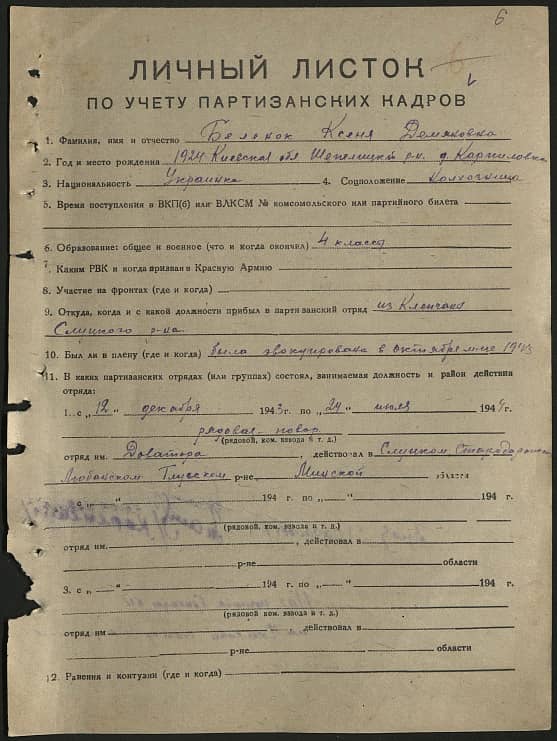 6
ЛИЧНЫЙ ЛИСТОК
ПО УЧЕТУ ПАРТИЗАНСКИХ КАДРОВ
1. Фамилия, имя и отчество Беленок Ксеня Демяновна
2. Год и место рождения 1924 Киевская обл Шепелицкий р-н. д. Карпиловка
3. Национальность Украинка 4. Соцположение колхозница
5. Время поступления в ВКП(б) или ВЛКСМ № комсомольского или партийного билета
6. Образование: общее и военное (что и когда окончил) 4 класса
7. Каким РВК и когда призван в Красную Армию
8. Участие на фронтах (где и когда)
9. Откуда, когда и с какой должности прибыл в партизанский отряд из
Слуцкого р-на.
10. Был ли в плену (где и когда) была эвокуирована в октябре м-це 1943
11. В каких партизанских отрядах (или группах) состоял, занимаемая должность и район действия
отряда:
1. с „12“ декабря 1943 г. по „24“ июля 1944 г.
рядовая повар
(рядовой, ком. взвода и т. д.)
отряд им. Доватора, действовал в Слуцком
Любанском Глусском р-не Минской области
с „ “ 194 г. по „ “ 194 г.
(рядовой, ком. взвода и т. д.)
отряд им. , действовал в
р-не области
3. с „ “ 194 г. по „ “ 194 г.
(рядовой, ком. взвода и т. д.)
отряд им действовал в
р-не области
12. Ранения и контузии (где и когда)